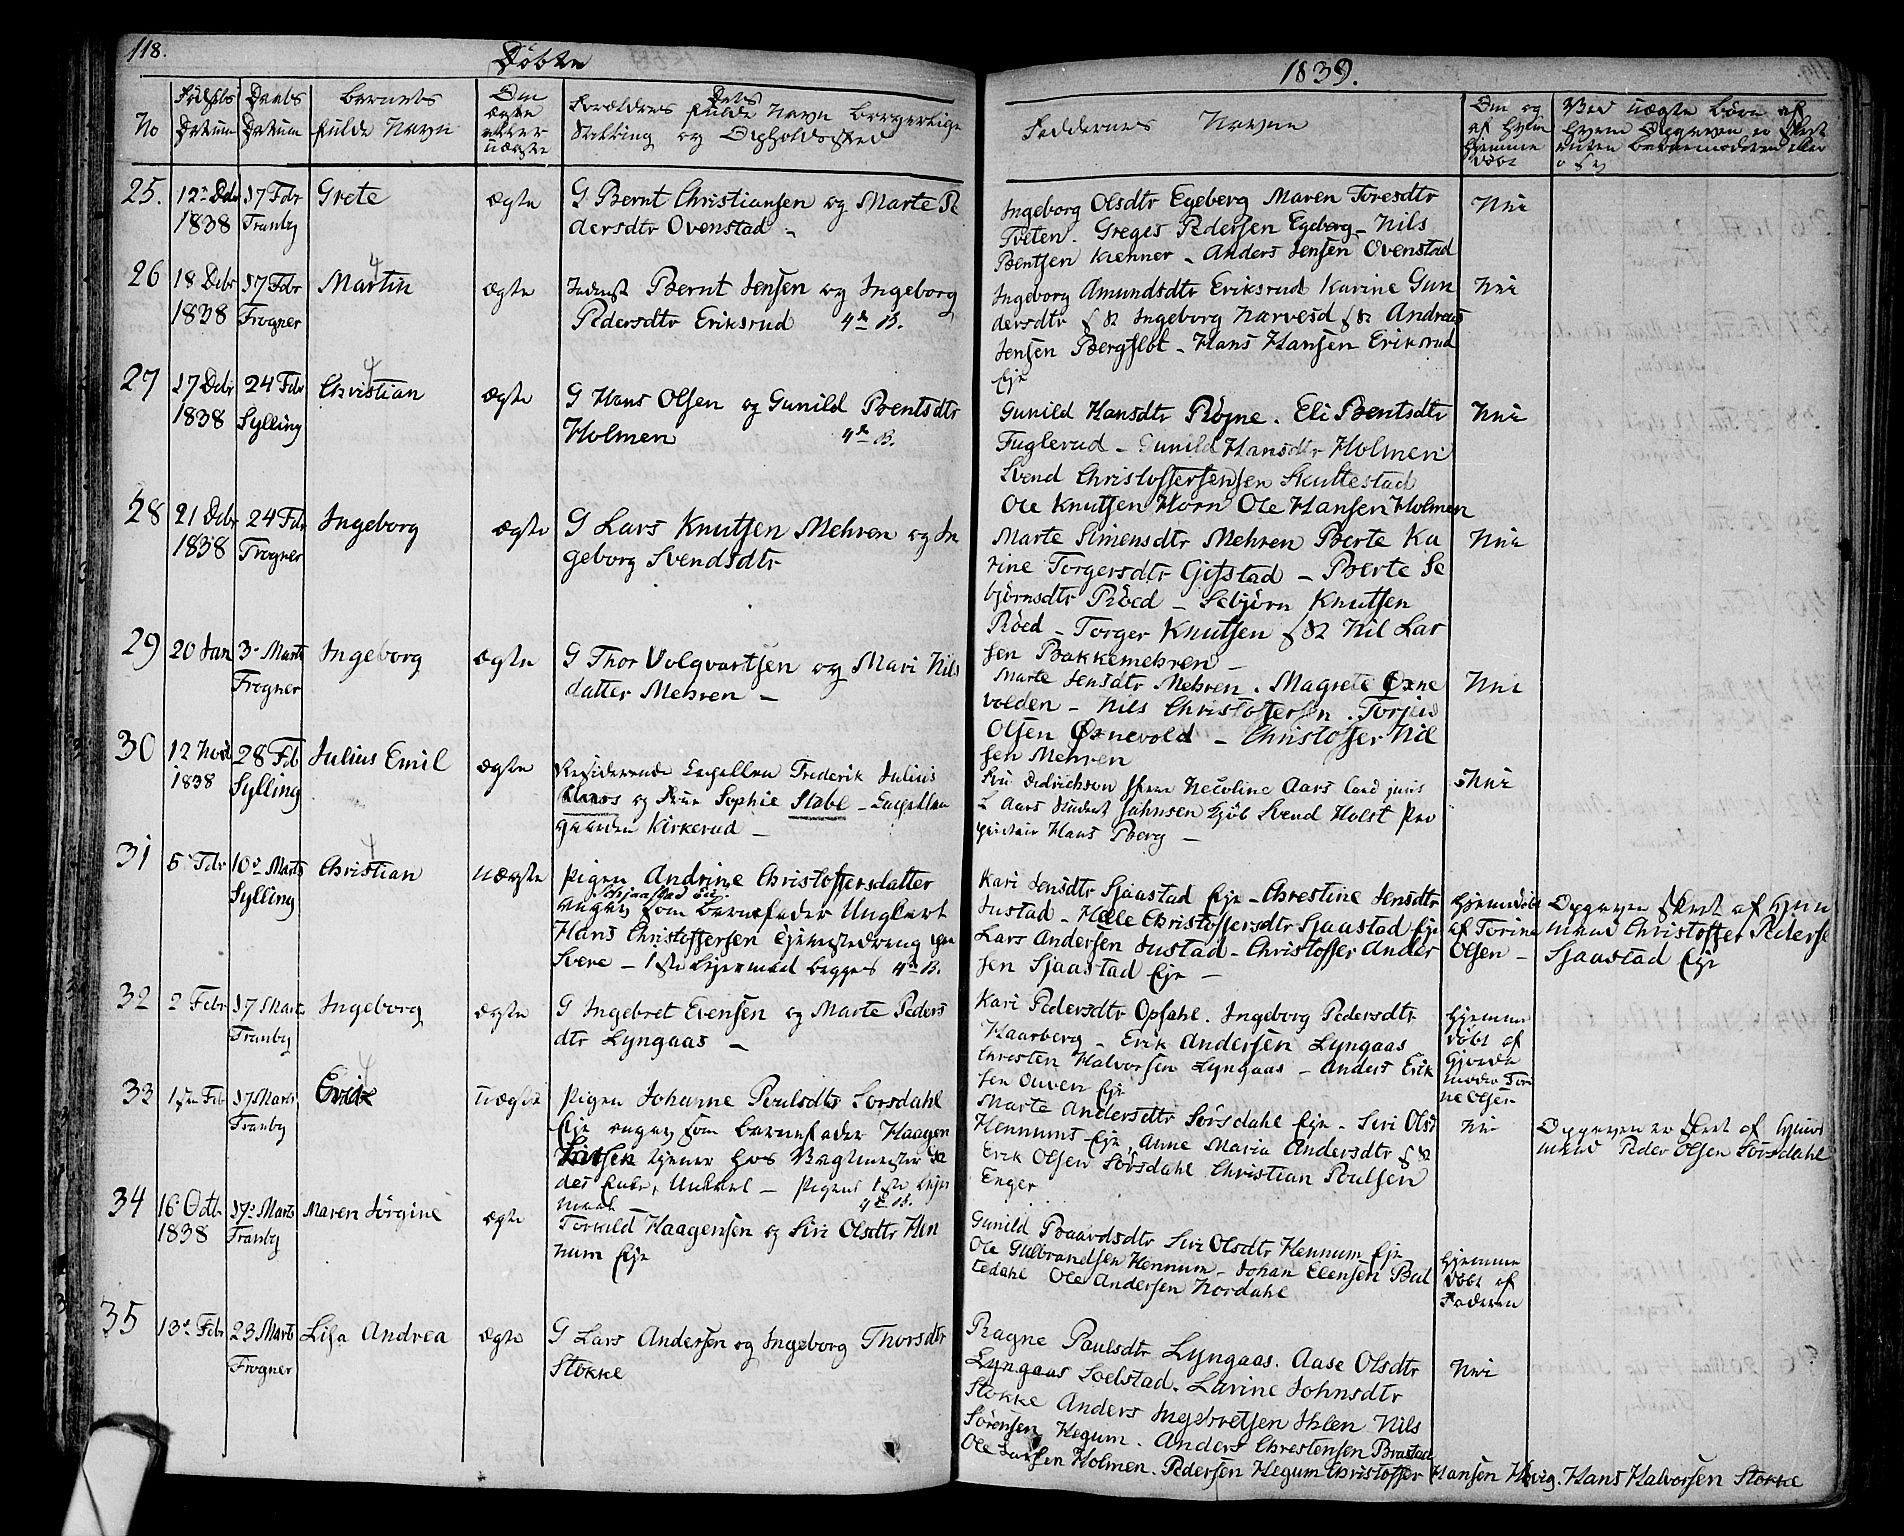 118.
Døbte
1839.
No
Fødsels Datum
Daabs Datum
Barnets fulde Navn
Om ægte eller uægte
Forældrenes fulde Navn Borgerlige
Stilling og Opholdssted
Faddernes Navne
Om og af hvem hjemme døbt
Ved uægte Børn af hvem Opgaven er skeet enten Barnemoderen eller
25. 12te Dcbr 1838 17 Febr Tranby Grete ægte
G Bernt Christiansen og Marte Pe
dersdtr Ovenstad -
Ingeborg Olsdtr Egeberg Maren Toresdtr
Tveten. Greges Pedersen Egeberg - Nils
Bentsen Kienner - Anders Jensen Ovenstad
Nei
26 18 Dcbr 1838 17 Febr Frogner Martin ægte
Inderst Bernt Jensen og Ingeborg
Pedersdtr Eriksrud 4de B.
Ingeborg Amundsdtr Eriksrud Karine Gun
dersdtr Ingeborg Narvesd Andreas
Jensen Bergflot - Hans Hansen Eriksrud
Eje
Nei
27 17 Dcbr 1838 24 Febr Sylling Christian ægte
G Hans Olsen og Gunild Bentsdtr
Holmen 4de B.
Gunild Hansdtr Røgne. Eli Bentsdtr
Fuglerud - Gunild Hansdtr Holmen
Svend Christoffersensen Skuttestad
Ole Knutsen Horn Ole Hansen Holmen
Nei
28 21 Dcbr 1838 24 Febr Frogner Ingeborg ægte
G Lars Knutsen Mehren og In
geborg Svendsdtr
Marte Simensdtr Mehren Berte Ka
rine Torgersdtr Gifstad - Berte Se
bjørnsdtr Røed - Sebjørn Knutsen
Røed - Torger Knutsen Nil Lar
sen Bakkemehren -
Nei
29 20 Jan 3 Marts Frogner Ingeborg ægte
G Thor Volqvartsen og Mari Nils
datter Mehren -
Marte Jensdtr Mehren. Magrete Øxne
volden - Nils Christoffersen. Torjus
Olsen Øxnevold - Christoffer Nil
sen Mehren
Nei
30 12 Novb 1838 28 Feb Sylling Julius Emil ægte
Residerende Capellan Frederik Julius
Aars og Frue Sophie Stabel - Capellan
gaarden Kirkerud -
Fru Didrichsen Nicoline Aars Cand juris
Aars Student Jahnsen Svend Holst Pro
prietair Hans Berg -
Nei
31 5 Febr 10de Marts Sylling Christian uægte
Pigen Andrine Christoffersdatter
Sjaastad Eie
angav som Barnefader Ungkarl
Hans Christoffersen
Svere - 1ste Leiermaal begges 4de B.
Kari Jensdtr Sjaastad Eje - Chrestine Jensdtr
Justad - Helle Christoffersdtr Sjaastad Eje
Lars Andersen Justad - Christoffer Ander
sen Sjaastad Eje -
Hjemmdøbt
af Torine
Olsen -
Opgaven skeet af Huus
mand Christoffer Pederse
Sjaastad Eje
32 2 Febr 17 Marts Tranby Ingeborg ægte
G Ingebret Evensen og Marte Peders
dtr Lyngaas -
Kari Pedersdtr Opsahl. Ingeborg Pedersdtr
Haarberg - Erik Andersen Lyngaas
Christen Halvorsen Lyngaas - Anders Erik
sen Ouven Eje
Hjemme
døbt af
Gjorde
moder Tor
ne Olsen
33 1ste Feb 17 Marts Tranby Erik uægte
Pigen Johanne Poulsdtr Sørsdahl
Eje angav som Barnefader Haagen
Larsen tjener hos
Pigens 1ste Leier
maal 4de B.
Marte Andersdtr Sørsdahl Eje - Siri Olsd
Hennums Eje, Anne Maria Andersdtr
Erik Olsen Sørsdahl Christian Poulsen
Enger
Nei
Opgaven er skeet af Huus
mand Peder Olsen Sørsdahl
34 16 Octb 1838 17de Marts Tranby Maren Jørgine ægte
Torkild Haagensen og Siri Olsdtr Hen
num Eje
Gunild Baardsdtr Siri Olsdtr Hennum Eje
Ole Gulbrandsen Hennum - Johan Elensen Bul
tedahl Ole Andersen Nordahl
Hjemme
døbt af
Faderen
35 13de Febr 23 Marts Frogner Lisa Andrea ægte
G Lars Andersen og Ingeborg Thorsdtr
Stokke
Ragne Paulsdtr Lyngaas. Aase Olsdtr
Lyngaas Solstad. Larine Johnsdtr
Stokke Anders Ingebretsen Ihlen Nils
Sørensen Hegum. Anders Chrestensen Brastad
Ole Larsen Holmen. Pedersen Hegum Christoffer Hansen Hvig. Hans Halvorsen Stokke
Nei